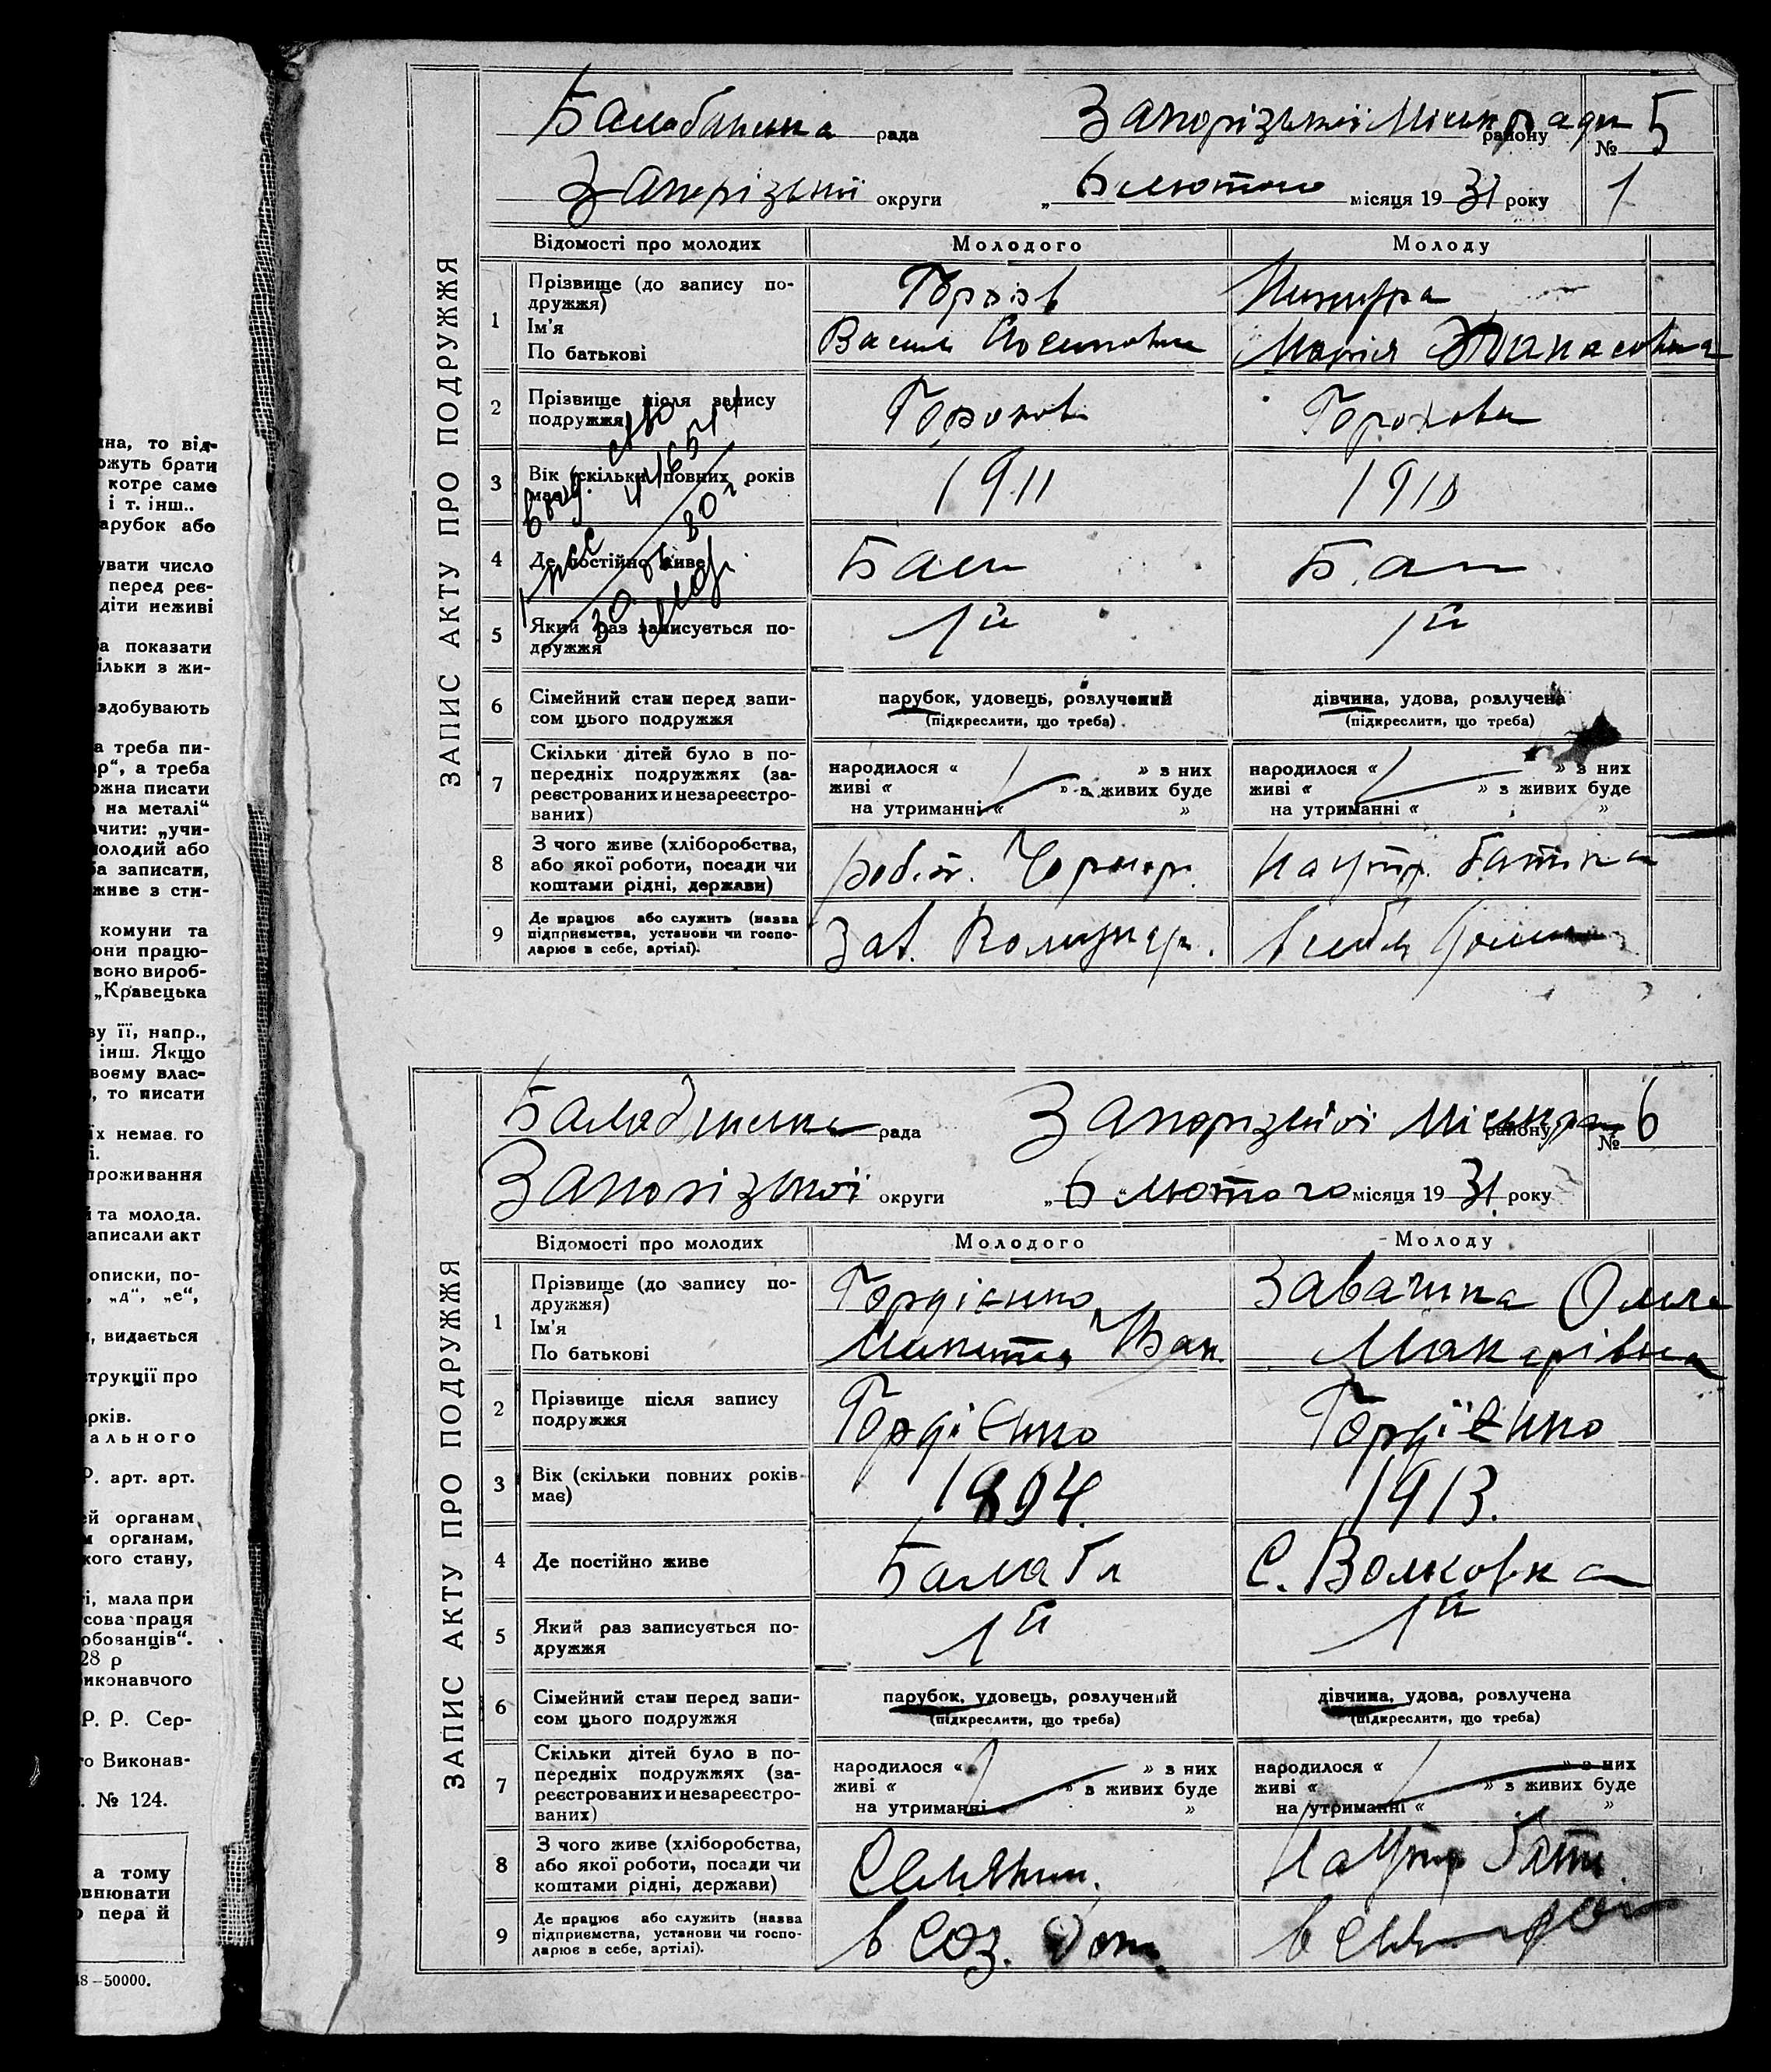 на, то від-
ожуть брати
котре саме
і т. інш..
арубок або
увати число
перед реє-
діти неживі
а показати
ільки з жи-
здобувають
а треба пи-
ар“, а треба
ожна писати
на металі“
ачити: „учи-
молодий або
ба записати,
живе з сти-
комуни та
вони працю-
воно вироб-
„Кравецька
ву її, напр.,
інш. Якщо
воєму влас-
, то писати
їх немає
проживання
й та молода.
аписали акт
описки, по-
„д“, „е“,
, видається
струкції про
арків.
ального
Р. арт. арт.
ей органам
органам,
кого стану,
і, мала при
сова праця
рбованців“.
28 р
иконавчого
Р. Р. Сер-
го Виконав-
. № 124.
а тому
овнювати
пера й
8—50000.
ЗАПИС АКТУ ПРО ПОДРУЖЖЯ
Балабинська рада Запорізької Міськради району № 5
Запорізької округи „6 лютого місяця 1931 року 1
Відомості про молодих Молодого Молоду
1 Прізвище (до запису по-
дружжя)
Ім'я
По батькові
Горохів
Василь Йосипович
Марія
2 Прізвище після запису
подружжя
Горохов Горохова
3 Вік (скільки повних років
має)
1911 1910
4 Де постійно живе
Бал Бал
5 Який раз записується по-
дружжя
1й 1й
6 Сімейний стан перед запи-
сом цього подружжя
парубок, удовець, розлучений
(підкреслити, що треба)
дівчина, удова, розлучена
(підкреслити, що треба)
7 Скільки дітей було в по-
передніх подружжях (за-
реєстрованих и незареєстро-
ваних)
народилося « » з них
живі « » з живих буде
на утриманні « »
народилося « » з них
живі « » з живих буде
на утриманні « »
8 З чого живе (хліборобства,
або якої роботи, посади чи
коштами рідні, держави)
робіт. Чорнор. На утр. батька
9 Де працює або служить (назва
підприємства, установи чи госпо-
дарює в себе, артілі).
Зав. Комунар.
ЗАПИС АКТУ ПРО ПОДРУЖЖЯ
Балабинська рада Запорізької Міськради району № 6
Запорізької округи „6 лютого місяця 1931 року
Відомості про молодих Молодого Молоду
1 Прізвище (до запису по-
дружжя)
Ім'я
По батькові
Гордієнко
Микита Іван.
Ольга
Макарівна
2 Прізвище після запису
подружжя
Гордієнко Гордієнко
3 Вік (скільки повних років
має)
1894. 1913.
4 Де постійно живе
Балаби С. Волковка
5 Який раз записується по-
дружжя
1й 1й
6 Сімейний стан перед запи-
сом цього подружжя
парубок, удовець, розлучений
(підкреслити, що треба)
дівчина, удова, розлучена
(підкреслити, що треба)
7 Скільки дітей було в по-
передніх подружжях (за-
реєстрованих и незареєстро-
ваних)
народилося « » з них
живі « » з живих буде
на утриманні « »
народилося « » з них
живі « » з живих буде
на утриманні « »
8 З чого живе (хліборобства,
або якої роботи, посади чи
коштами рідні, держави)
Селянин. На утр бать
9 Де працює або служить (назва
підприємства, установи чи госпо-
дарює в себе, артілі).
в Соз.